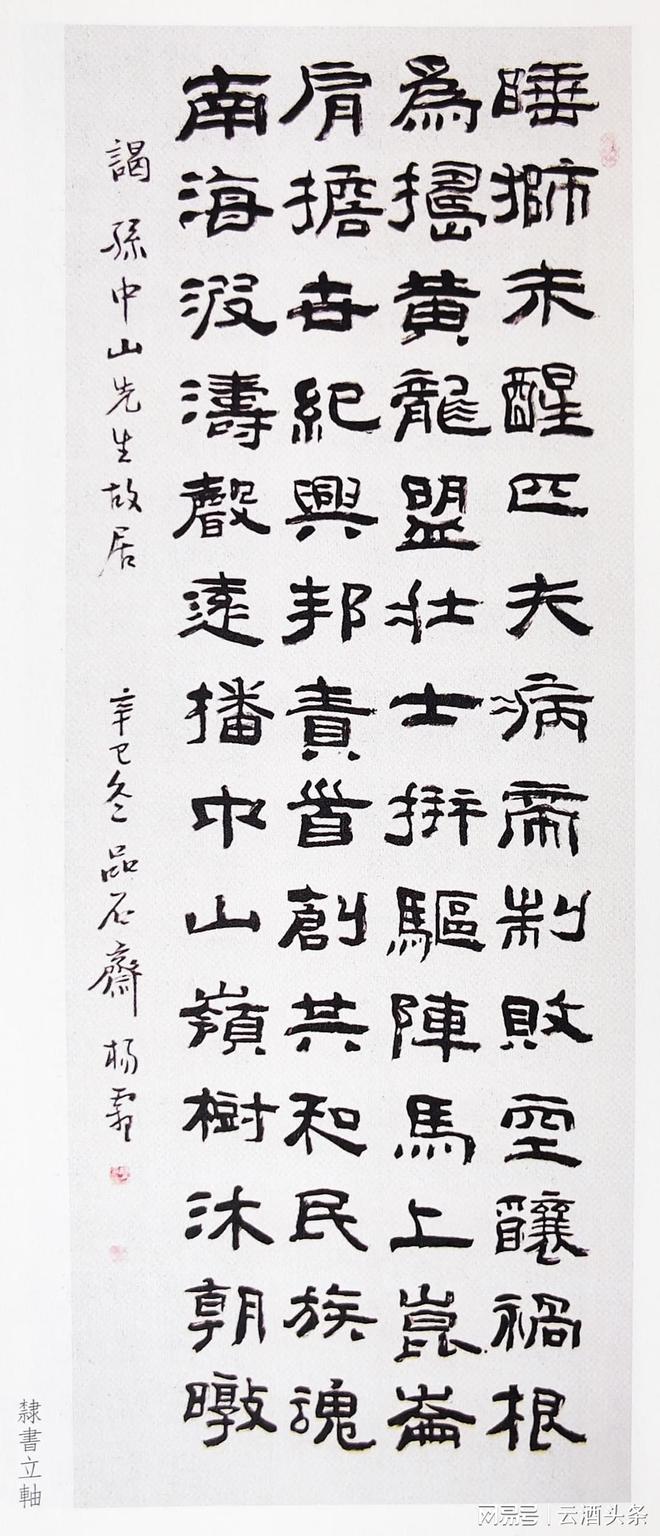 睡獅未醒匹夫病帝制敗空釀禍根
爲搗黃龍盟壯士拚驅陣馬上崑崙
肩擔世紀興邦責首創共和民族魂
南海波濤聲遠播中山嶺樹沐朝暾
謁 孫中山先生故居 辛巳冬 品石齋 杨
隸書立軸
网易号 | 云酒头条